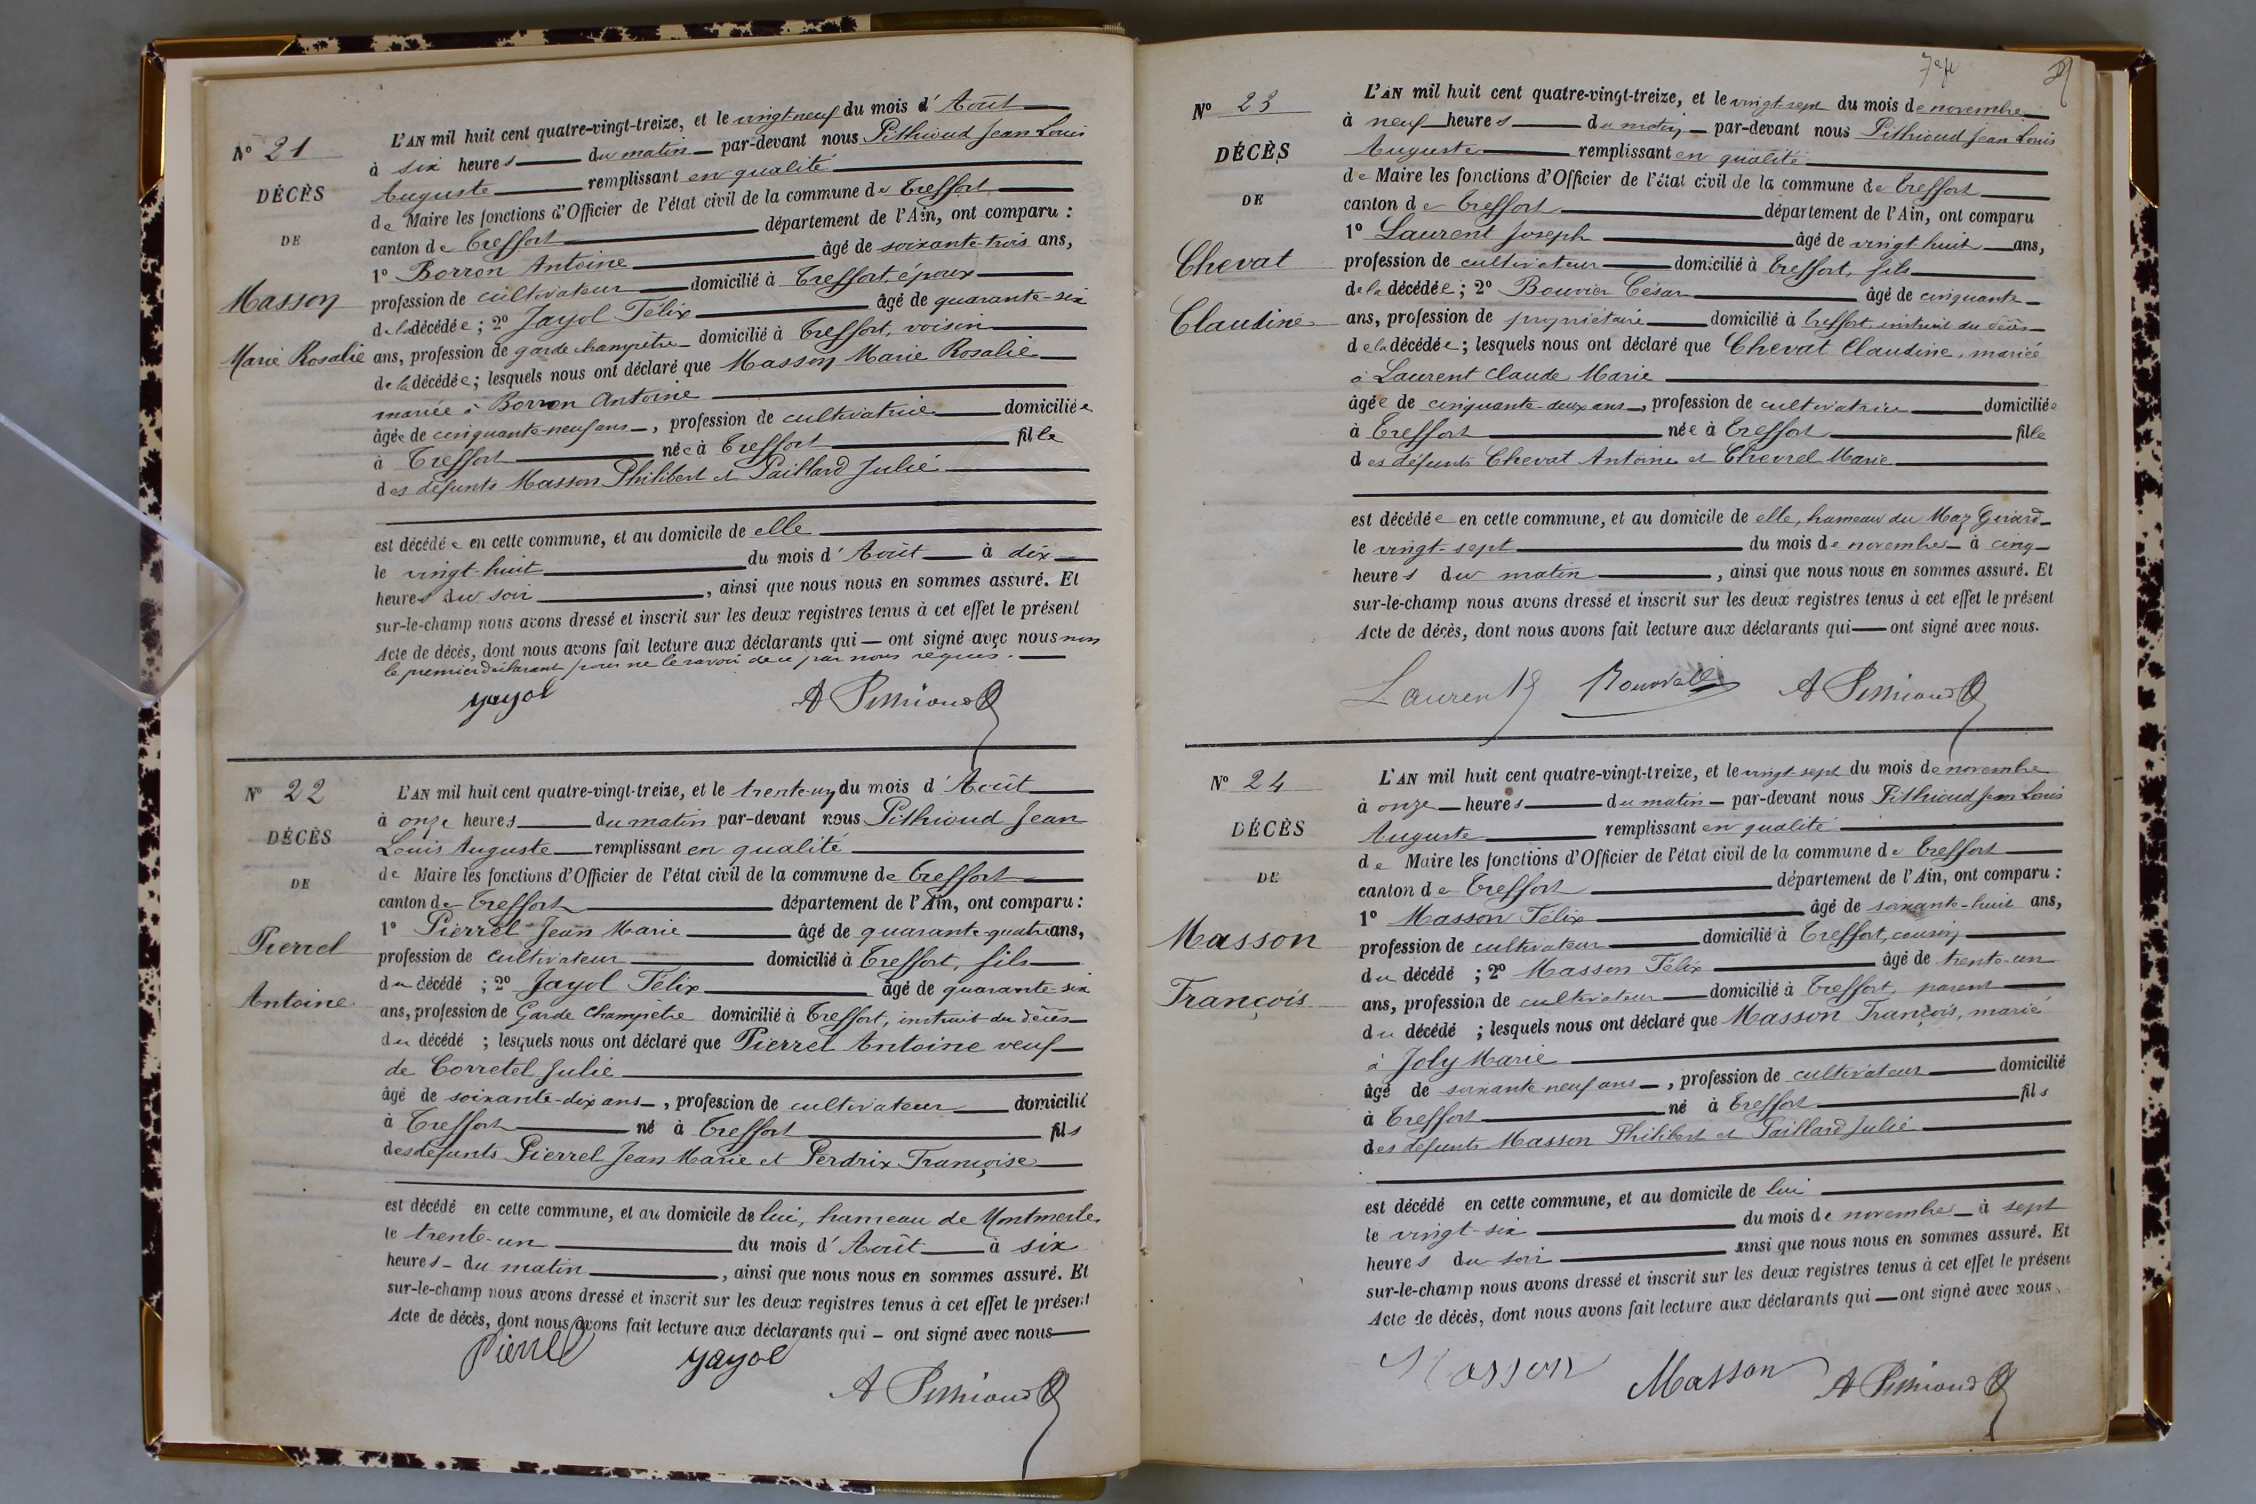 N° 21
DÉCÈS
DE
Masson
Marie Rosalie
L'AN mil huit cent quatre-vingt-treize, et le vingt-neuf du mois d'Août
à six heures du matin par-devant nous Pithioud Jean Louis
Auguste remplissant en qualité
de Maire les fonctions d'Officier de l'état civil de la commune de Treffort
canton de Treffort département de l'Ain, ont comparu :
1° Borron Antoine âgé de soixante-trois ans,
profession de cultivateur domicilié à Treffort, époux
de la décédée ; 2° Jayol Félix âgé de quarante-six
ans, profession de garde champêtre domicilié à Treffort, voisin
de la décédée ; lesquels nous ont déclaré que Masson Marie Rosalie
mariée à Borron Antoine
âgée de cinquante-neuf ans, profession de cultivatrice domiciliée
à Treffort née à Treffort fille
des défunts Masson Philibert et Paillard Julie
est décédée en cette commune, et au domicile de elle
le vingt-huit du mois d'Août à dix
heures du soir, ainsi que nous nous en sommes assuré. Et
sur-le-champ nous avons dressé et inscrit sur les deux registres tenus à cet effet le présent
Acte de décès, dont nous avons fait lecture aux déclarants qui — ont signé avec nous non
le premier déclarant pour ne le savoir de ce par nous requis.
Jayol A Pithioud
N° 22
DÉCÈS
DE
Pierrel
Antoine
L'AN mil huit cent quatre-vingt-treize, et le trente-un du mois d'Août
à onze heures du matin par-devant nous Pithioud Jean
Louis Auguste remplissant en qualité
de Maire les fonctions d'Officier de l'état civil de la commune de Treffort
canton de Treffort département de l'Ain, ont comparu :
1° Pierrel Jean Marie âgé de quarante-quatre ans,
profession de cultivateur domicilié à Treffort, fils
du décédé ; 2° Jayol Félix âgé de quarante-six
ans, profession de Garde champêtre domicilié à Treffort, instruit du décès
du décédé ; lesquels nous ont déclaré que Pierrel Antoine veuf
de Corretel Julie
âgé de soixante-dix ans, profession de cultivateur domicilié
à Treffort né à Treffort fils
des défunts Pierrel Jean Marie et Perdrix Françoise
est décédé en cette commune, et au domicile de lui, hameau de Montmerle
le trente-un du mois d'Août à six
heures du matin, ainsi que nous nous en sommes assuré. Et
sur-le-champ nous avons dressé et inscrit sur les deux registres tenus à cet effet le présent
Acte de décès, dont nous avons fait lecture aux déclarants qui — ont signé avec nous
Pierrel Jayol
A Pithioud
N° 23
DÉCÈS
DE
Chevat
Claudine
L'AN mil huit cent quatre-vingt-treize, et le vingt-sept du mois de novembre
à neuf heures du matin par-devant nous Pithioud Jean Louis
Auguste remplissant en qualité
de Maire les fonctions d'Officier de l'état civil de la commune de Treffort
canton de Treffort département de l'Ain, ont comparu
1° Laurent Joseph âgé de vingt huit ans,
profession de cultivateur domicilié à Treffort, fils
de la décédée ; 2° Bouvier César âgé de cinquante
ans, profession de propriétaire domicilié à Treffort, instruit du décès
de la décédée ; lesquels nous ont déclaré que Chevat Claudine, mariée
à Laurent Claude Marie
âgée de cinquante-deux ans, profession de cultivatrice domiciliée
à Treffort née à Treffort fille
des défunts Chevat Antoine et Chevrel Marie
est décédée en cette commune, et au domicile de elle, hameau du Maz Girard
le vingt-sept du mois de novembre à cinq
heures du matin, ainsi que nous nous en sommes assuré. Et
sur-le-champ nous avons dressé et inscrit sur les deux registres tenus à cet effet le présent
Acte de décès, dont nous avons fait lecture aux déclarants qui — ont signé avec nous.
Laurent A Pithioud
N° 24
DÉCÈS
DE
Masson
François
L'AN mil huit cent quatre-vingt-treize, et le vingt-sept du mois de novembre
à onze heures du matin par-devant nous Pithioud Jean Louis
Auguste remplissant en qualité
de Maire les fonctions d'Officier de l'état civil de la commune de Treffort
canton de Treffort département de l'Ain, ont comparu :
1° Masson Félix âgé de soixante-huit ans,
profession de cultivateur domicilié à Treffort, cousin
du décédé ; 2° Masson Félix âgé de trente-un
ans, profession de cultivateur domicilié à Treffort, parent
du décédé ; lesquels nous ont déclaré que Masson François, marié
à Joly Marie
âgé de soixante-neuf ans, profession de cultivateur domicilié
à Treffort né à Treffort fils
des défunts Masson Philibert et Paillard Julie
est décédé en cette commune, et au domicile de lui
le vingt-six du mois de novembre à sept
heures du soir ainsi que nous nous en sommes assuré. Et
sur-le-champ nous avons dressé et inscrit sur les deux registres tenus à cet effet le présent
Acte de décès, dont nous avons fait lecture aux déclarants qui — ont signé avec nous.
Masson Masson A Pithioud